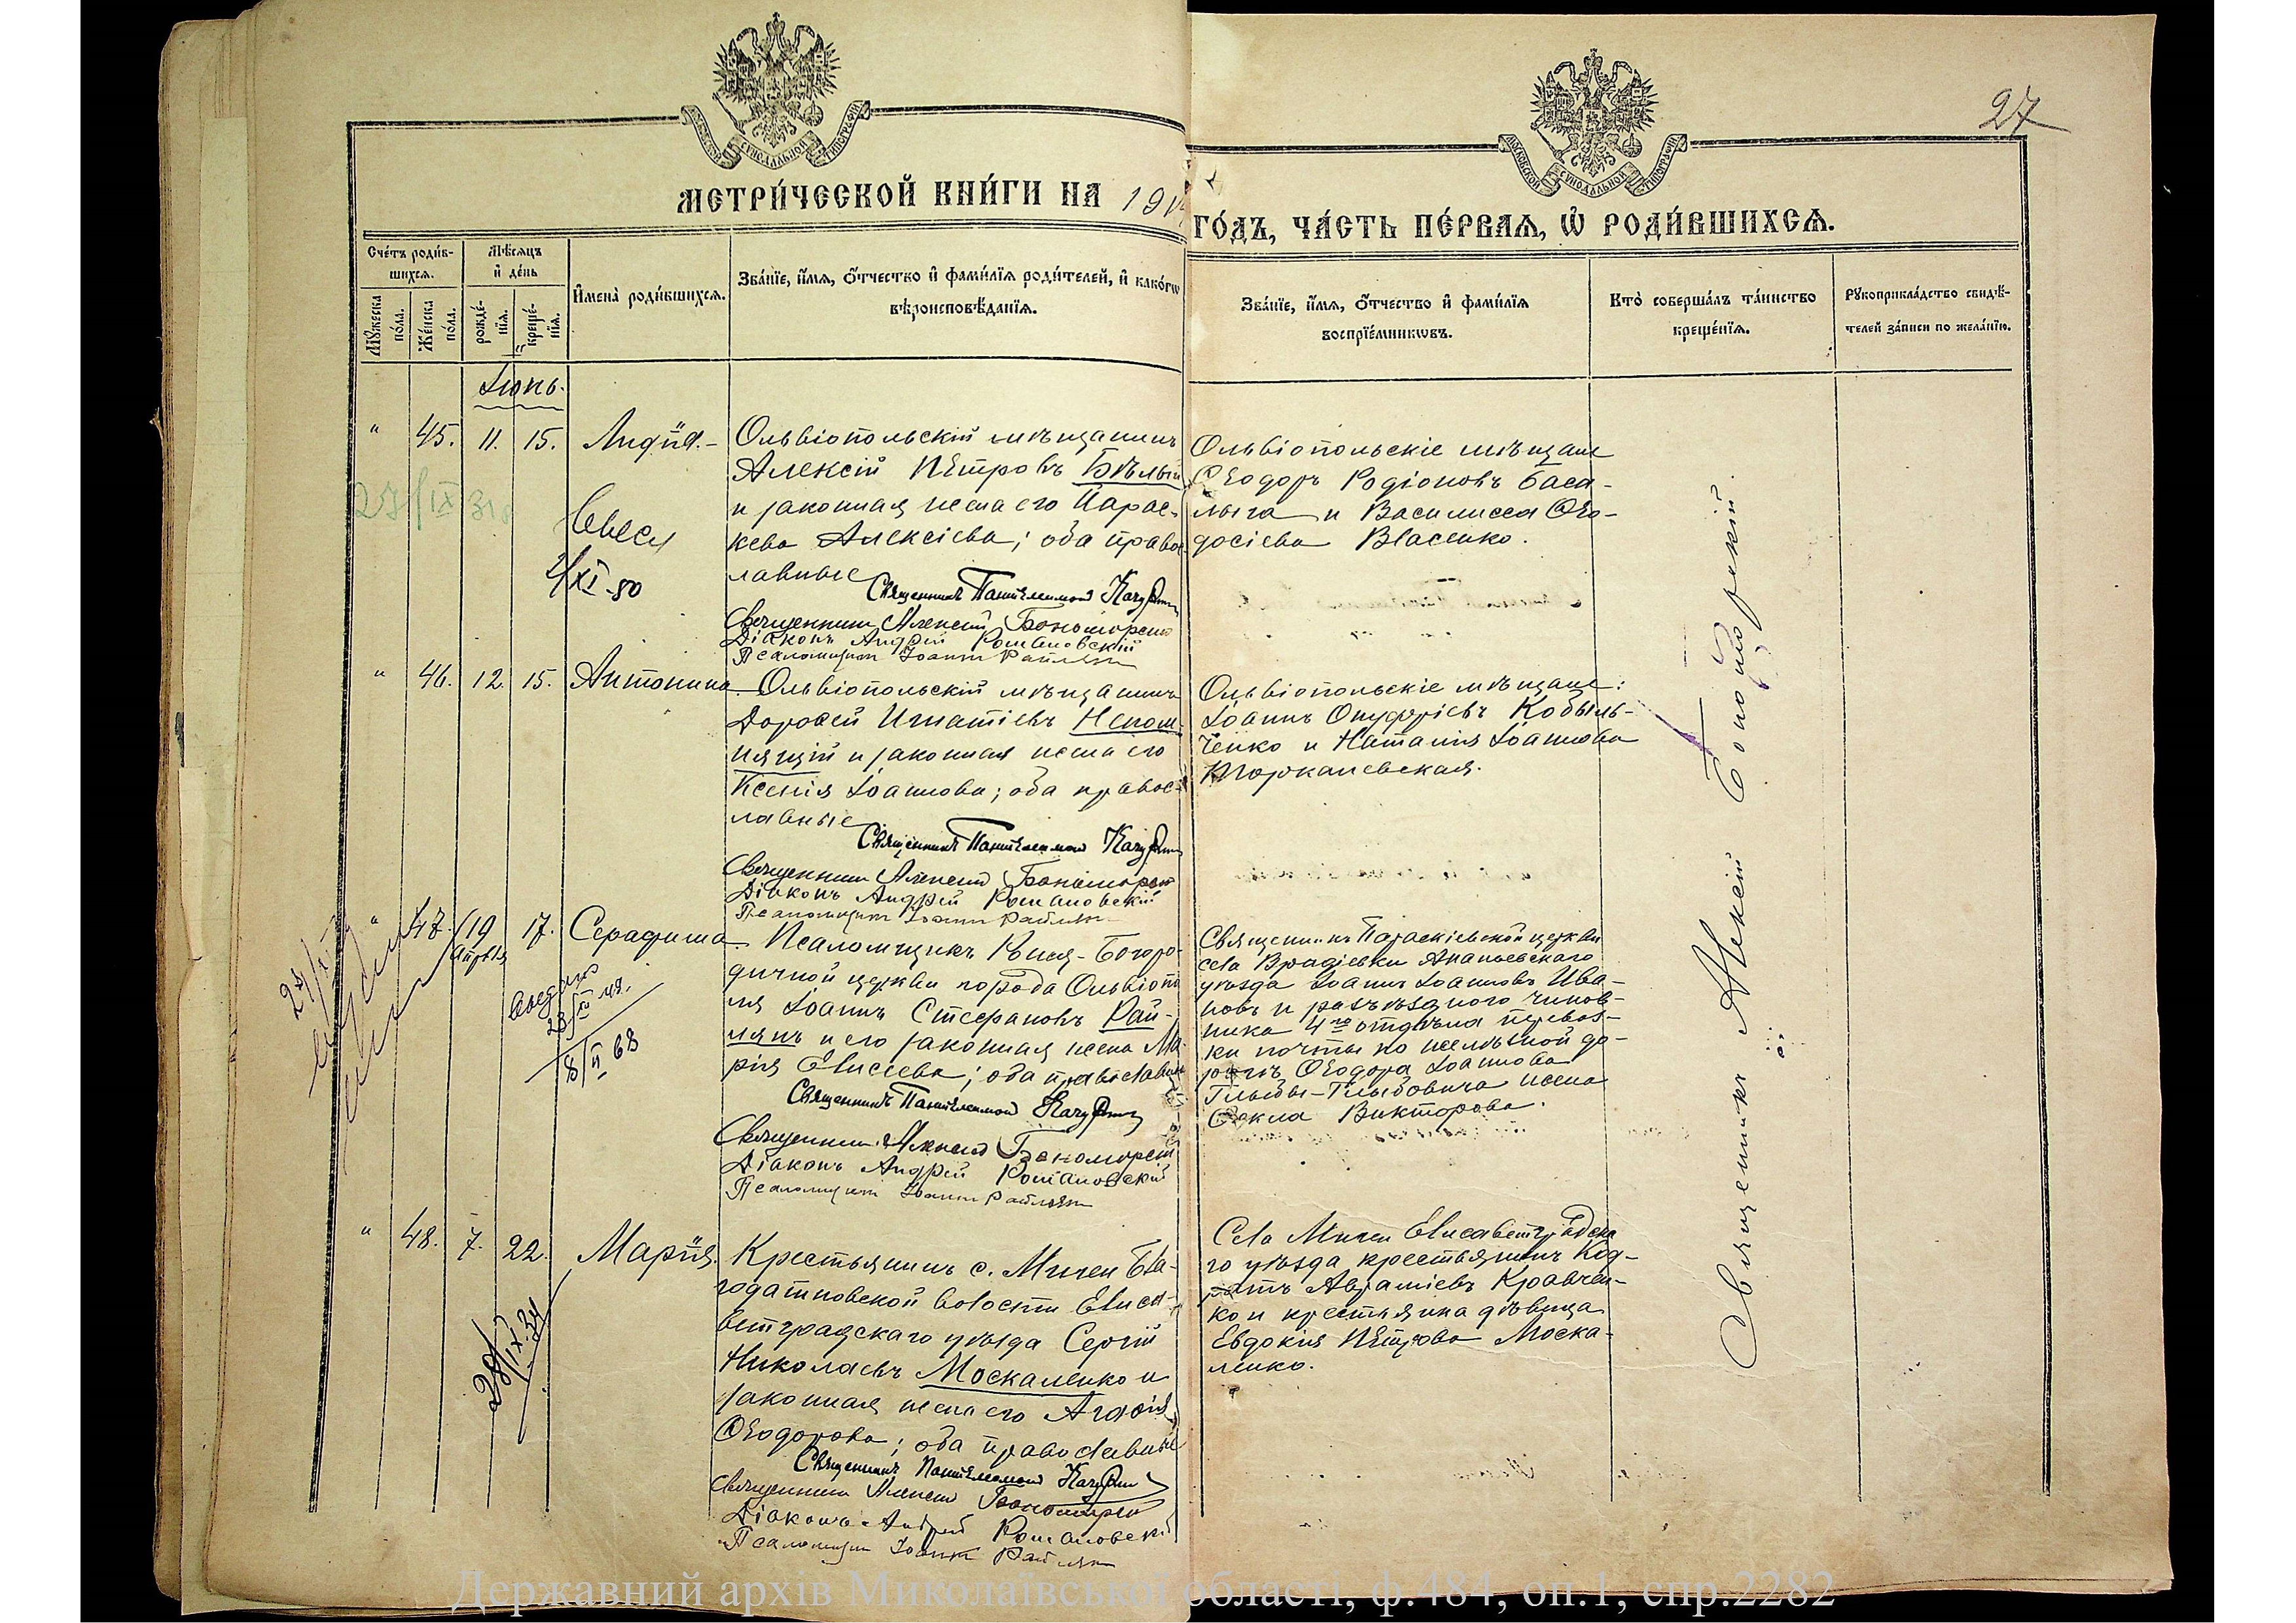 27
МЕТРИ́ЧЕСКОЙ КНИ́ГИ НА 191
ГО́ДЪ, ЧА́СТЬ ПЕ́РВАЯ, Ѡ҆ РОДИ́ВШИХСЯ.
Сче́тъ роди́в-
шихся.
Мѣ́сяцъ
и҆ де́нь
Мꙋ́жеска
по́ла.
Же́нска
по́ла.
рожде́-
нїя.
креще́-
нїя.
И҆мена̀ роди́вшихся.
Зва́нїе, и҆́мя, ѻ҆́тчество и҆ фами́лїя роди́телей, и҆ како́гѡ
вѣроисповѣ́данїя.
Зва́нїе, и҆́мя, ѻ҆́тчество и҆ фами́лїя
воспрїе́мникѡвъ.
Кто̀ соверша́лъ та́инство
креще́нїя.
Рꙋкоприкла́дство свидѣ́-
телей за́писи по жела́нїю.
Іюнь.
" 45. 11. 15. Лидія.
Ольвіопольскій мѣщанинъ
Алексій Петровъ Бѣлый
и законная жена его Парас-
кева Алексіева; оба правос-
лавные
Священникъ Пантелеимон
Священникъ Алексій
Діаконъ Андрей Романовскій
Псаломщикъ Іоаннъ Райлянъ
Ольвіопольскіе мѣщане
Ѳеодоръ Родіоновъ Баса-
лыга и Василисса Ѳео-
досіева Власенко.
27/IX 31
2/XI-80
" 46. 12. 15. Антонина
Ольвіопольскій мѣщанинъ
Дороѳей Игнатіевъ Непом-
нящій и законная жена его
Ксенія Іоаннова; оба правос-
лавные
Священникъ Пантелеимон
Священникъ Алексій
Діаконъ Андрей Романовскій
Псаломщикъ Іоаннъ Райлянъ
Ольвіопольскіе мѣщане:
Іоаннъ Онуфріевъ Кобыль-
ченко и Наталія Іоаннова
" 47. 19 17. Серафима
Апрѣля
Псаломщикъ Рожд-Богоро-
дичной церкви города Ольвіопо-
ля Іоаннъ Стефановъ Рай-
лянъ и его законная жена Ма-
рія Елисеева; оба православные
Священникъ Пантелеимон
Священникъ Алексій
Діаконъ Андрей Романовскій
Псаломщикъ Іоаннъ Райлянъ
Священникъ Параскіевской церкви
села Врадіевки Ананьевскаго
уѣзда Іоаннъ Іоанновъ Ива-
новъ и разъѣзднаго чинов-
ника 4го отдѣла перевоз-
ки почты по желѣзной до-
рогѣ Ѳеодора Іоаннова
жена
Ѳекла Викторова.
8/II 68
" 48. 7. 22. Марія.
Крестьянинъ с. Мигеи Бла-
годатновской волости Елиса-
ветградскаго уѣзда Сергій
Николаевъ Москаленко и
законная жена его Агафія
Ѳеодорова; оба православные
Священникъ Пантелеимон
Священникъ Алексій
Діаконъ Андрей Романовскій
Псаломщикъ Іоаннъ Райлянъ
Села Мигеи Елисаветградска-
го уѣзда крестьянинъ Код-
ратъ Авраміевъ Кравчен-
ко и крестьянка дѣвица
Евдокія Петрова Моска-
ленко.
28/IX.34
Священникъ Алексій
Державний архів Миколаївської області, ф.484, оп.1, спр.2282